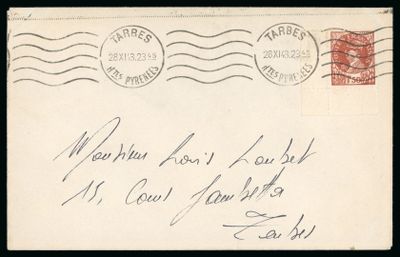 TARBES TARBES
28 XI 43. 23 45 28 XI 43. 23 45
Htes PYRENEES Htes PYRENEES
Monsieur Louis Loubet
15, Cours Gambetta
Tarbes